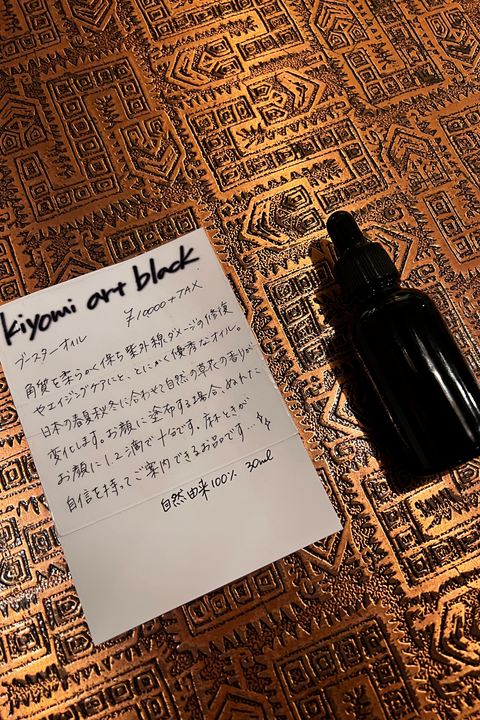 kiyomi art black
¥10000+TAX
ブースターオイル
角質を柔らかく保ち紫外線ダメージの修復
やエイジングケアにと、とにかく優秀なオイル。
日本の春夏秋冬に合わせて自然の草花の香りが
変化します。お顔に塗布する場合、ぬれた
お顔に1.2滴で十分です。麻ときが
自信を持ってご案内できるお品です
自然由来100% 30ml